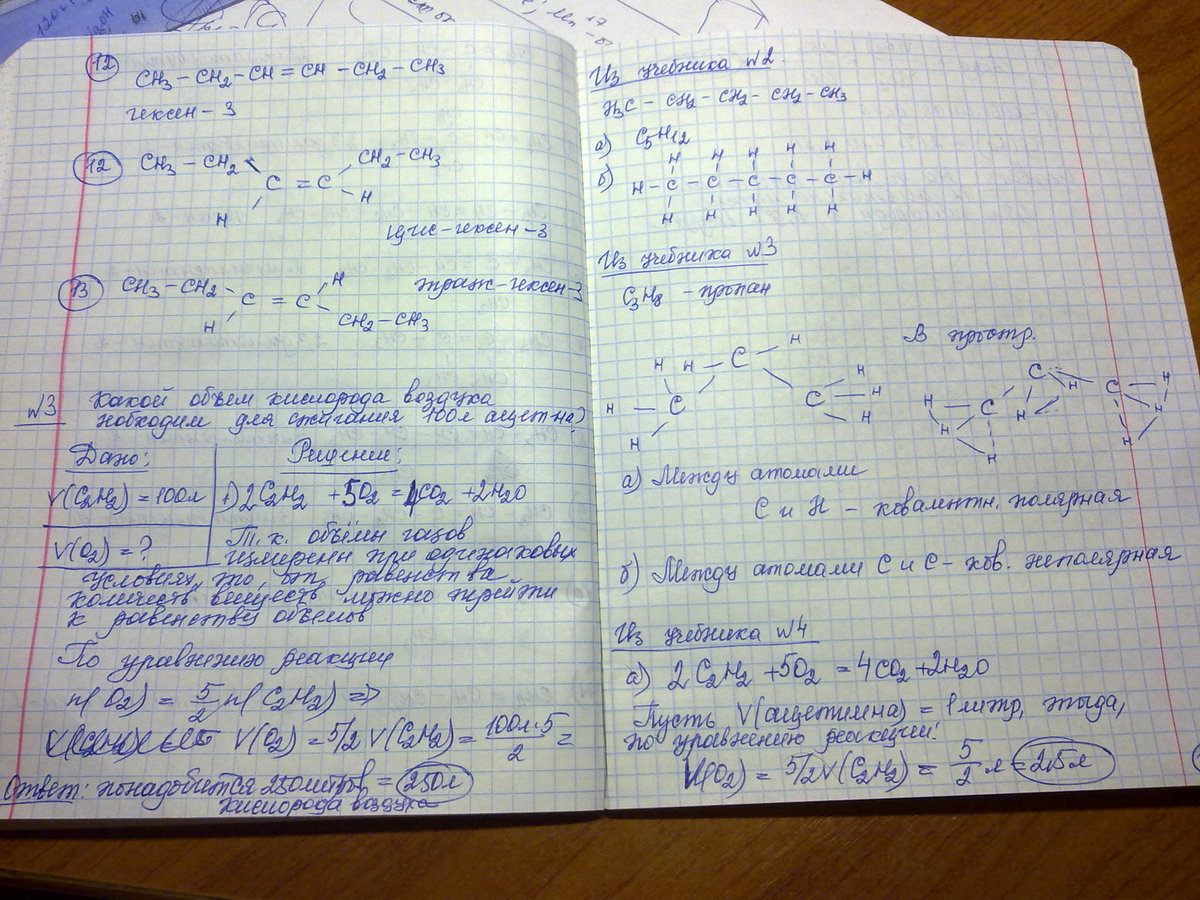 12
CH3 – CH2 – CH = CH – CH2 – CH3
гексен – 3
12
CH3 – CH2 CH2 – CH3
C = C
H H
цис – гексен – 3
13
CH3 – CH2 H транс – гексен – 3
C = C
H CH2 – CH3
№3 Какой объем кислорода воздуха
необходим для сжигания 100л ацет-на?
Дано: Решение:
V(C2H2) = 100л 1) 2C2H2 + 5O2 = 4CO2 + 2H2O
V(O2) = ? Т. к. объёмы газов
измерены при одинаковых
условиях, то, от равенства
количеств веществ можно прийти
к равенству объемов
По уравнению реакции
n(O2) = 5/2 n(C2H2) =>
V(O2) = 5/2 V(C2H2) = 100л·5/2 =
Ответ: понадобится 250литров = 250л
кислорода воздуха
Из учебника №2
H3C – CH2 – CH2 – CH2 – CH3
а) C5H12
б) H H H H H
H – C – C – C – C – C – H
H H H H H
Из учебника №3
C3H8 – пропан
В простр.
H H C H
H C C H H
H H
C H C H
H C H H
H H H
а) Между атомами
C и H – ковалентн. полярная
б) Между атомами C и C – ков. неполярная
Из учебника №4
а) 2C2H2 + 5O2 = 4CO2 + 2H2O
Пусть V(ацетилена) = 1 литр, тогда,
по уравнению реакции:
V(O2) = 5/2V(C2H2) = 5/2 л = 2,5л